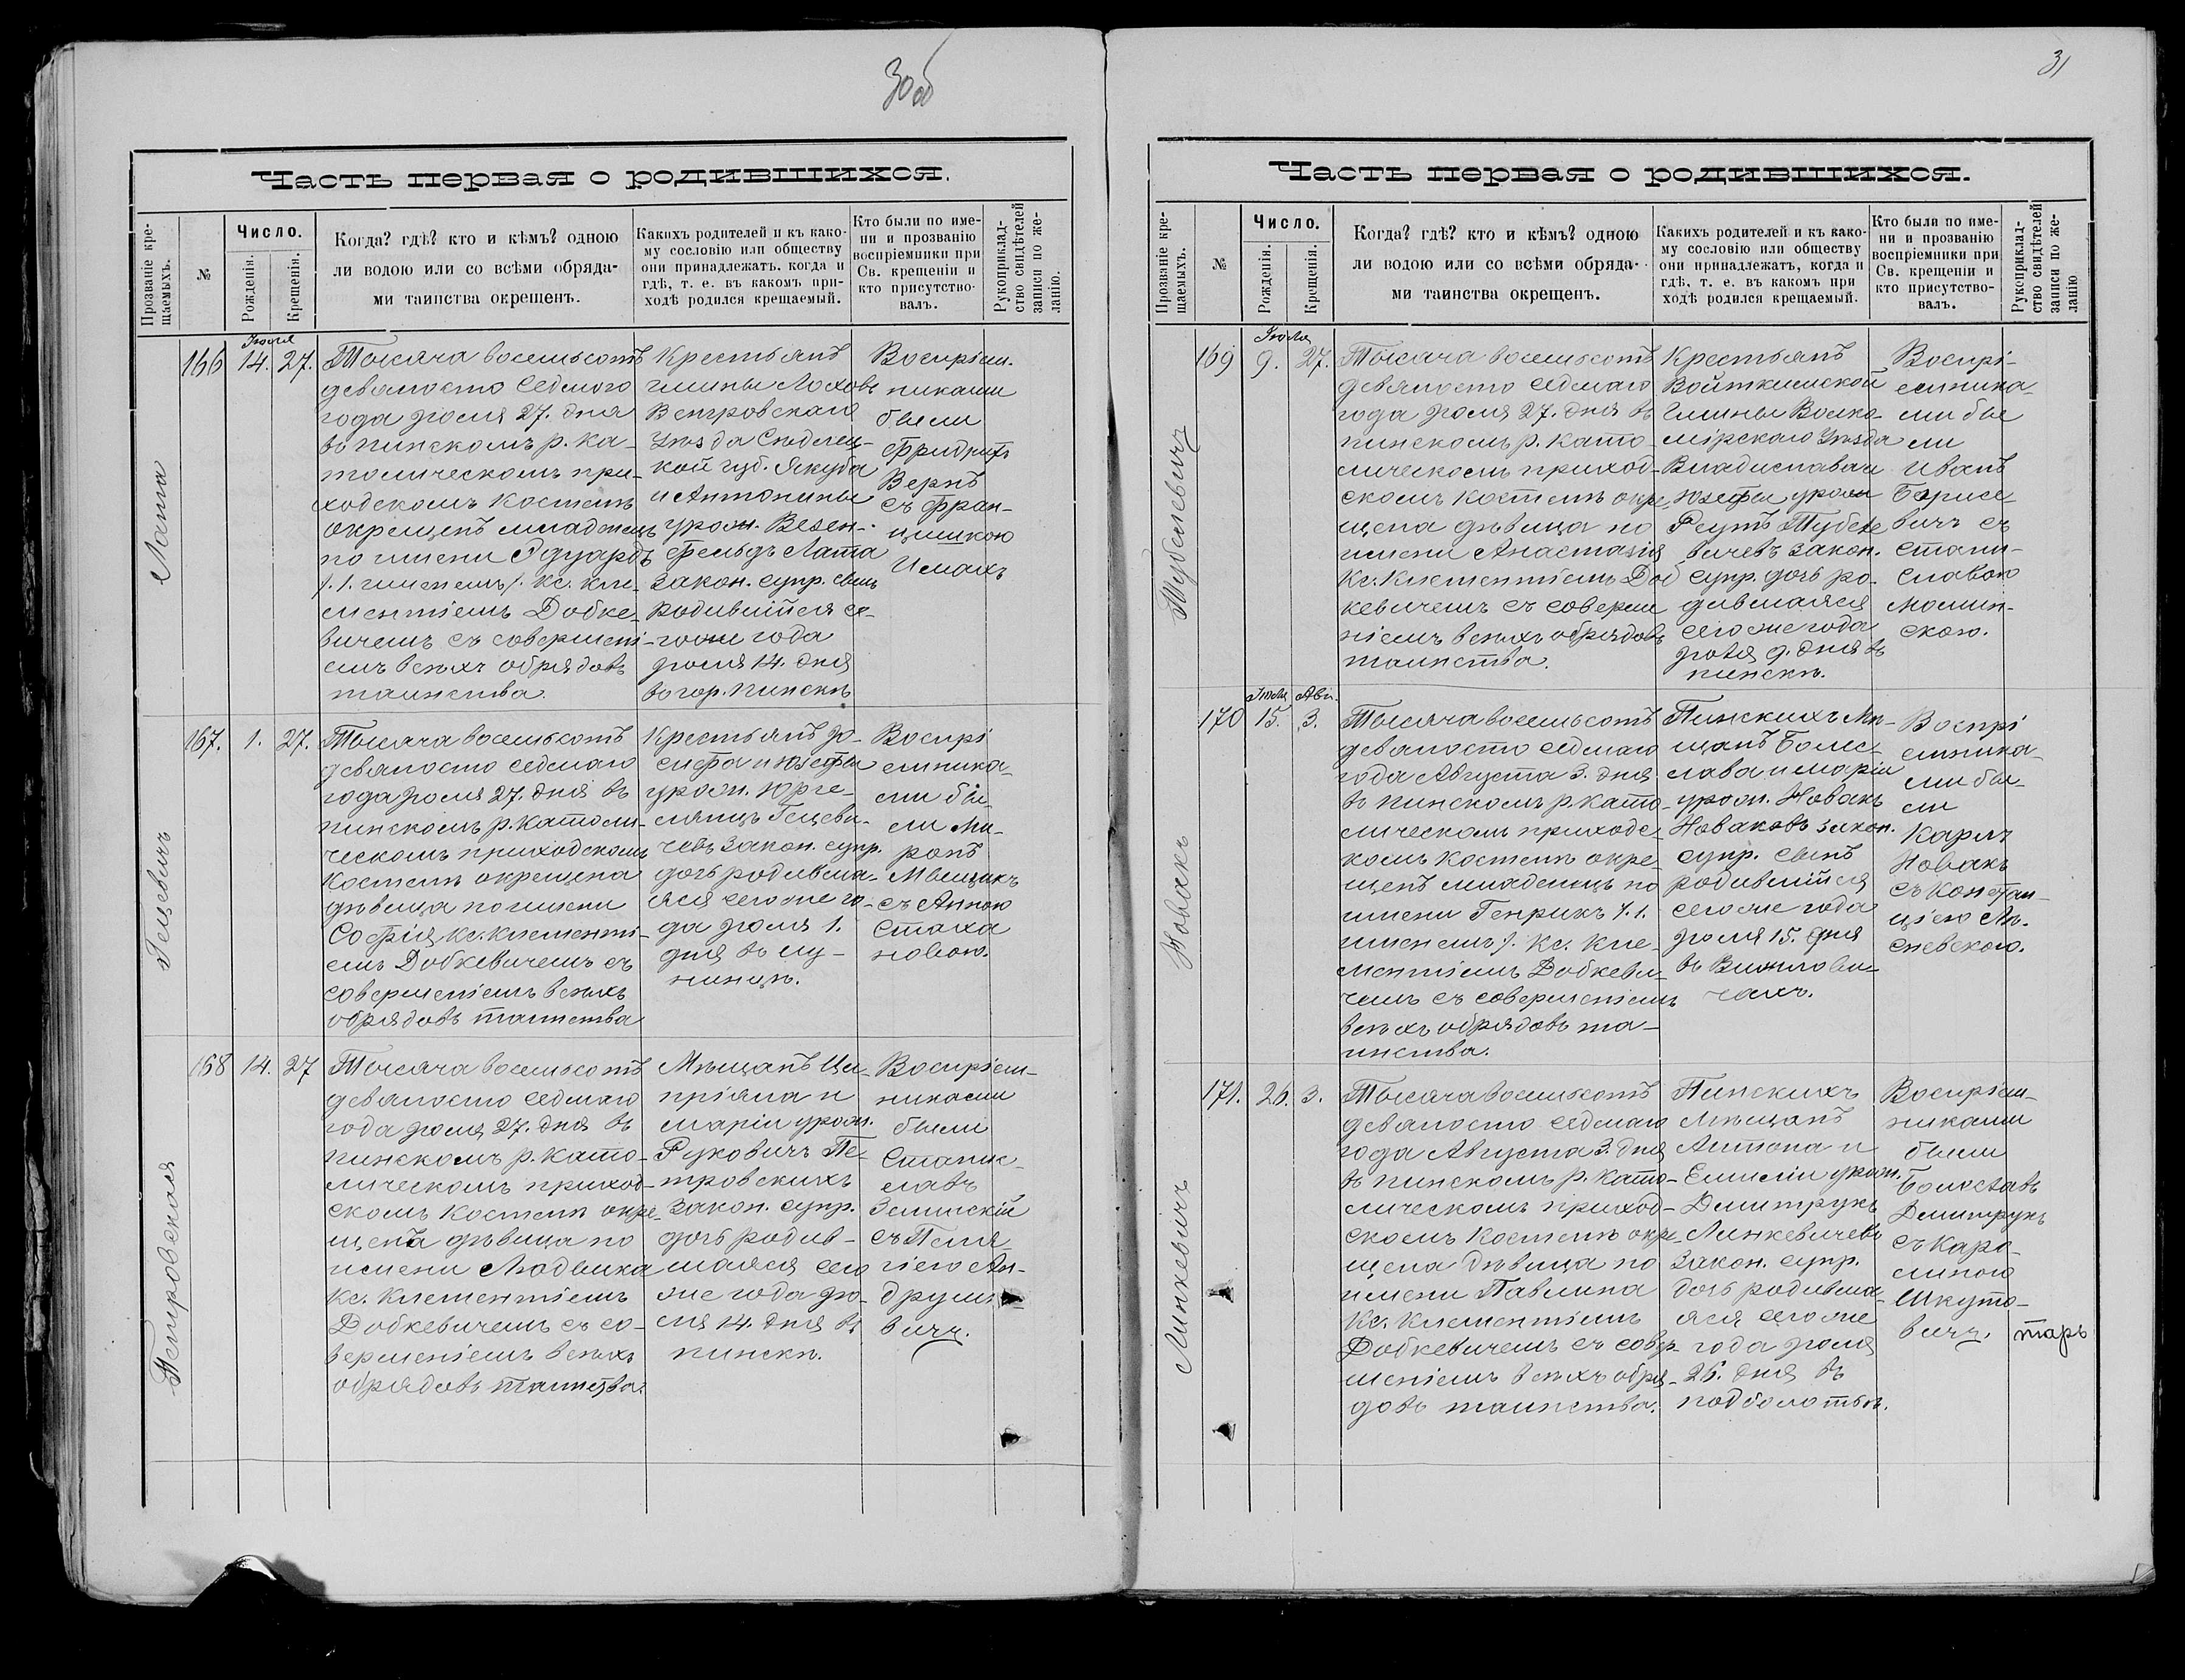 30 об
Часть первая о родившихся.
Прозваніе кре-
щаемыхъ.
№
Число.
Рожденія.
Крещенія.
Когда? гдѣ? кто и кѣмъ? одною
ли водою или со всѣми обряда-
ми таинства окрещенъ.
Какихъ родителей и къ како-
му сословію или обществу
они принадлежатъ. когда и
гдѣ, т. е. въ какомъ при-
ходѣ родился крещаемый.
Кто были по име-
ни и прозванію
воспріемники при
Св. крещеніи и
кто присутство-
валъ.
Рукоприклад-
ство свидѣтелей
записи по же-
ланію.
Лата
166
Іюля
14.
27.
Тысяча восемьсотъ
девяносто седмого
года Іюля 27. дня
въ Пинскомъ р. ка-
толическомъ при-
ходскомъ костелѣ
окрещенъ младенецъ
по имени Эдуардъ
/. 1. именемъ /. Кс. Кле-
ментіемъ Добке-
вичемъ съ совершені-
емъ всѣхъ обрядовъ
таинства.
Крестьянъ
гмины Лоховъ
Венгровскаго
уѣзда Сѣдлец-
кой губ. Якуба
и Антонины
урож. Везен-
фельдъ Лата
закон. супр. сынъ
родившійся се-
гоже года
Іюля 14. дня
въ гор. Пинскѣ
Воспріем-
никами
были
Фридрихъ
Вернъ
съ Фран-
цишкою
Гецевичъ
167.
1.
27.
Тысяча восемьсотъ
девяносто седмаго
года Іюля 27. дня въ
Пинскомъ р. католи-
ческомъ приходскомъ
костелѣ окрещена
дѣвица по имени
Софія Кс. Клементі-
емъ Добкевичемъ съ
совершеніемъ всѣхъ
обрядовъ таинства
Крестьянъ Іо-
сифа и Юзефы
урож. Юрге-
Гецеви-
чевъ закон. супр.
дочь родивша-
яся сегоже го-
да Іюля 1.
дня въ Лу-
нинцѣ.
Воспрі
емника-
ми бы-
ли Ми-
ронъ
съ Анною
Стаха
новою.
Петровская
168
14.
27
Тысяча восемьсотъ
девяносто седмаго
года Іюля 27. дня въ
Пинскомъ р. като-
лическомъ приход-
скомъ костелѣ окре-
щена дѣвица по
имени Людвика
Кс. Клементіемъ
Добкевичемъ съ со-
вершеніемъ всѣхъ
обрядовъ таинства.
Мѣщанъ Ци-
пріяна и
Маріи урож.
Руковичъ Пе-
тровскихъ
закон. супр.
дочь родив-
шаяся сего
же года Ію-
ля 14. дня въ
Пинскѣ.
Воспріем-
никами
были
Станис-
лавъ
Зелинскій
съ Пеля-
гіею Ан-
друш-
вичъ.
31
Часть первая о родившихся.
Прозваніе кре-
щаемыхъ.
№
Число.
Рожденія.
Крещенія.
Когда? гдѣ? кто и кѣмъ? одною
ли водою или со всѣми обряда-
ми таинства окрещенъ.
Какихъ родителей и къ како-
му сословію или обществу
они принадлежатъ, когда и
гдѣ, т. е. въ какомъ при
ходѣ родился крещаемый.
Кто были по име-
ни и прозванію
воспріемники при
Св. крещеніи и
кто присутство-
валъ.
Рукоприклад-
ство свидѣтелей
записи по же-
ланію
Тубелевичъ
169
Іюля
9.
27.
Тысяча восемьсотъ
девяносто седмаго
года Іюля 27. дня въ
Пинскомъ р. като-
лическомъ приход-
скомъ костелѣ окре
щена дѣвица по
имени Анастазія
Кс. Клементіемъ Доб
кевичемъ съ соверше
ніемъ всѣхъ обрядовъ
таинства.
Крестьянъ
Войткишской
Гмины Волко-
мірскаго уѣзда
Владиславаи
Юзефы урож
Реутъ Тубеле
вичевъ закон.
супр. дочь ро-
дившаяся
сегоже года
Іюля 9. дня въ
Пинскѣ.
Воспрі-
емника-
ми бы
ли
Иванъ
Борисе
вичъ съ
Стани-
славою
скою.
Новакъ
170
Іюля
15.
Авг.
3.
Тысяча восемьсотъ
девяносто седмаго
года Августа 3. дня
въ Пинскомъ р. като-
лическомъ приходс-
комъ костелѣ окре-
щенъ младенецъ по
имени Генрикъ /. 1.
именемъ /. Кс. Кле-
ментіемъ Добкеви-
чемъ съ совершеніемъ
всѣхъ обрядовъ та-
инства.
Пинскихъ Мѣ-
щанъ Болес-
лава и Маріи
урож. Новакъ
Новаковъ закон.
супр. сынъ
родившійся
сегоже года
Іюля 15. дня
въ
чахъ.
Воспрі
емника-
ми бы-
ли
Карлъ
Новакъ
съ Констан-
ціею Ян-
Линкевичъ
171.
26.
3.
Тысяча восемьсотъ
девяносто седмаго
года Августа 3. дня
въ Пинскомъ р. като-
лическомъ приход-
скомъ костелѣ окре-
щена дѣвица по
имени Павлина
Кс. Клементіемъ
Добкевичемъ съ совер-
шеніемъ всѣхъ обря-
довъ таинства.
Пинскихъ
Мѣщанъ
Антона и
Емиліи урож.
Дмитрукъ
Линкевичевъ
закон. супр.
дочь родивша-
яся сегоже
года Іюля
26. дня въ
Подболотьѣ.
Воспріем-
никами
были
Болеславъ
Дмитрукъ
съ Каро-
линою
Шкуто-
вичъ.
тарь